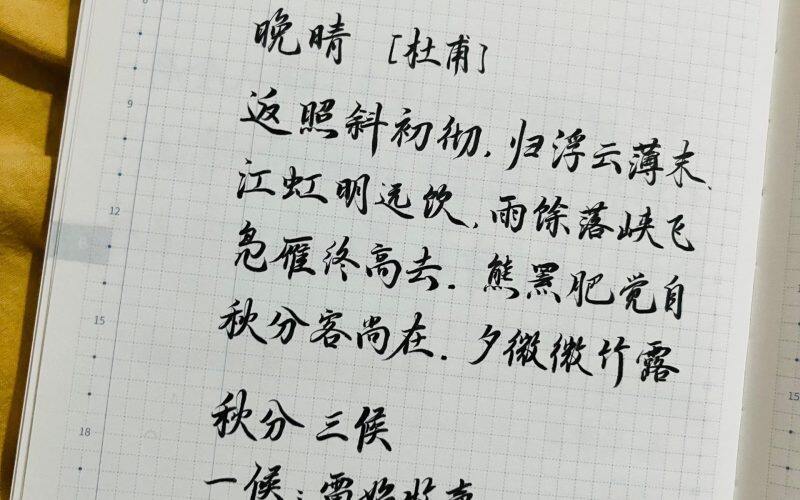 晚晴 [杜甫]
返照斜初彻，归浮云薄未，
江虹明远饮，雨馀落峡飞
凫雁终高去．熊罴肥觉自
秋分客尚在．夕微微竹露
秋分三候
一候：雷始收声